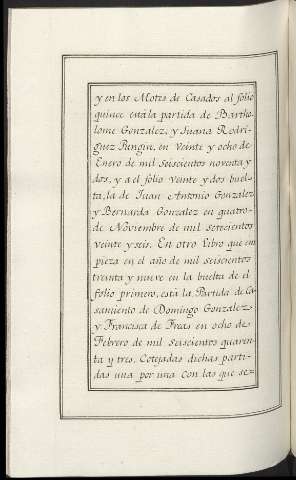 y en los Motes de Casados al folio
quince está la partida de Bartho-
lome Gonzalez, y Juana Rodri-
guez Pungin, en Veinte y ocho de
Enero de mil Seiscientos noventa y
dos, y a el folio Veinte y dos buel-
ta, la de Juan Antonio Gonzalez
y Bernarda Gonzalez en quatro-
de Noviembre de mil Setecientos
veinte y seis. En otro Libro que em
pieza en el año de mil seiscientos
treinta y nueve en la buelta de el
folio primero, está la Partida de Ca-
samiento de Domingo Gonzalez
y Francisca de Freas en ocho de
Febrero de mil Seiscientos quaren
ta y tres. Cotejadas dichas parti-
das una por una con las que se=